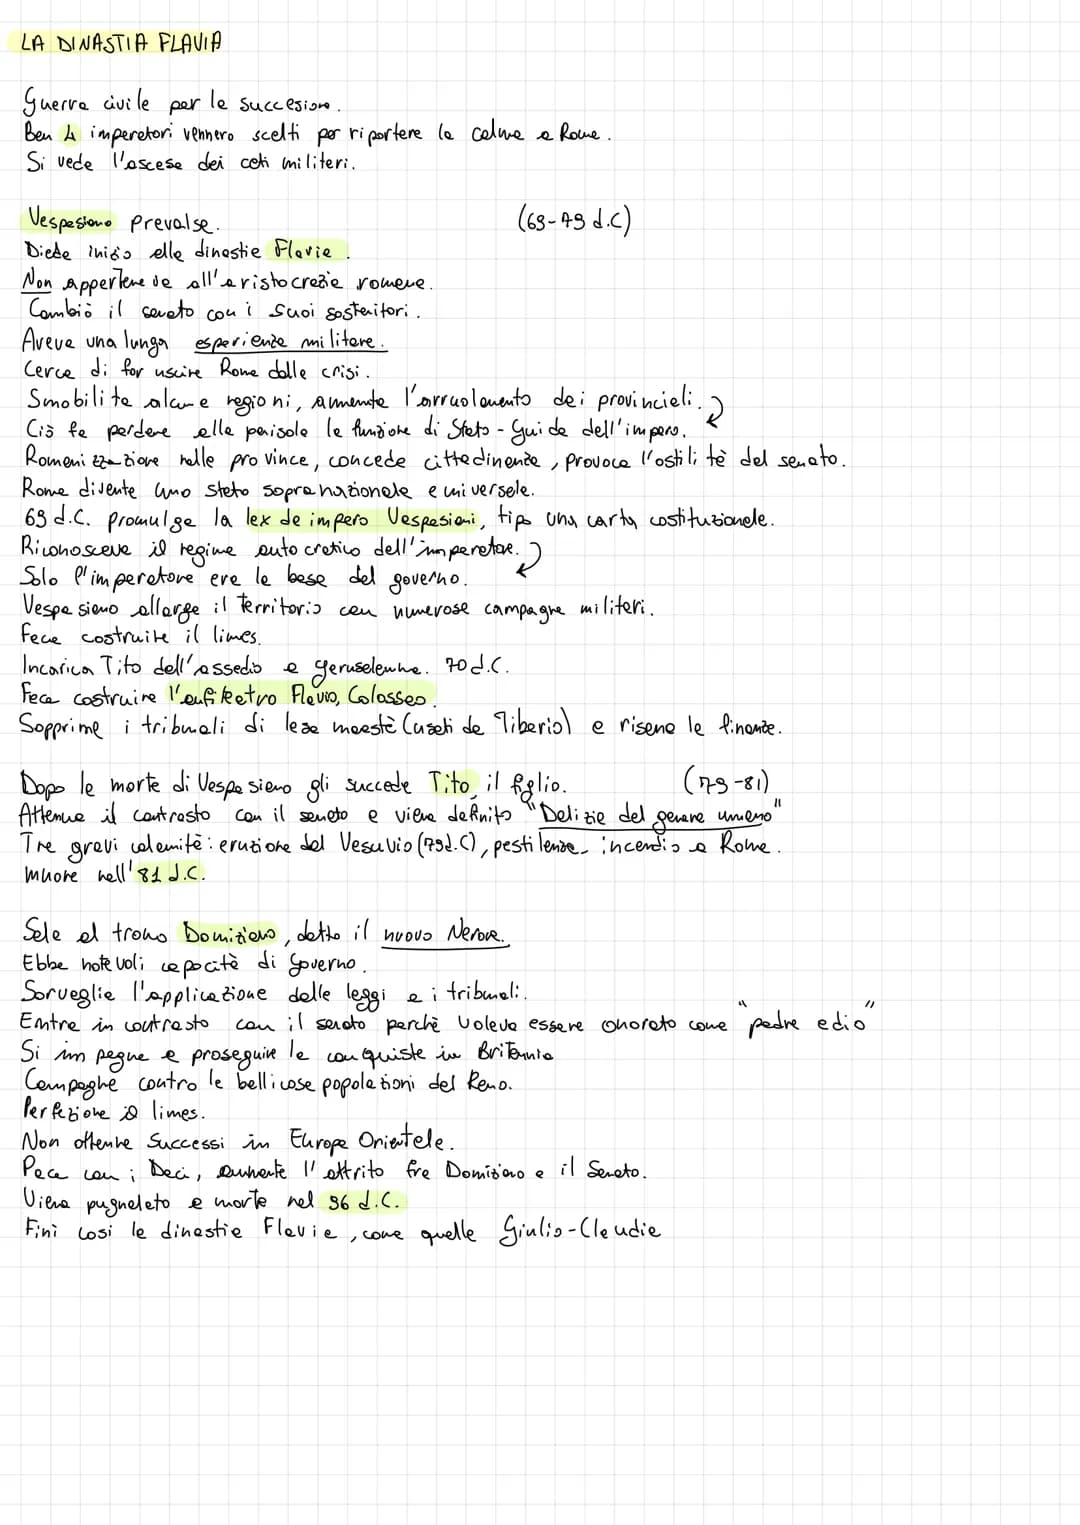 LA DINASTIA FLAVIA
Guerra civile per la succesione.
Ben 4 imperatori vennero scelti per riportare la calma a Roma.
Si vede l'ascesa dei ceti militari.
Vespasiano prevalse. (69-79 d.C)
Diede inizio alla dinastia Flavia.
Non apparteneva all'aristocrazia romana.
Cambiò il senato con i suoi sostenitori.
Aveva una lunga esperienza militare.
Cerca di far uscire Roma dalla crisi.
Smobilita alcune regioni, aumenta l'arruolamento dei provinciali.
Ciò fa perdere alla penisola la funzione di Stato-Guida dell'impero.
Romanizzazione nelle province, concede cittadinanza, provoca l'ostilità del senato.
Roma diventa uno stato sopranazionale e universale.
69 d.C. promulga la lex de impero Vespasiani, tipo una carta costituzionale.
Riconosceva il regime autocratico dell'imperatore.
Solo l'imperatore era la base del governo.
Vespasiano allarga il territorio con numerose campagne militari.
Fece costruire il limes.
Incarica Tito dell'assedio a gerusalemme. 70 d.C.
Fece costruire l'anfiteatro Flavio, Colosseo.
Sopprime i tribunali di lesa maestà (usati da Tiberio) e risana le finanze.
Dopo la morte di Vespasiano gli succede Tito, il figlio. (79-81)
Attenua il contrasto con il senato e viene definito "Delizia del genere umano"
Tre gravi calamità: eruzione del Vesuvio (79d.C), pestilenza, incendio a Roma.
muore nell'81 d.C.
Sale al trono Domiziano, detto il nuovo Nerone.
Ebbe notevoli capacità di Governo.
Sorveglia l'applicazione delle leggi e i tribunali.
Entra in contrasto con il senato perchè voleva essere onorato come "padre e dio"
Si impegna a proseguire le conquiste in Britannia
Campaghe contro le bellicose popolazioni del Reno.
Perfeziona il limes.
Non ottenne successi in Europa Orientale.
Pace con i Daci, aumenta l'attrito fra Domiziano e il Senato.
Viene pugnalato a morte nel 96 d.C.
Finì così la dinastia Flavia, come quella Giulio-Claudia